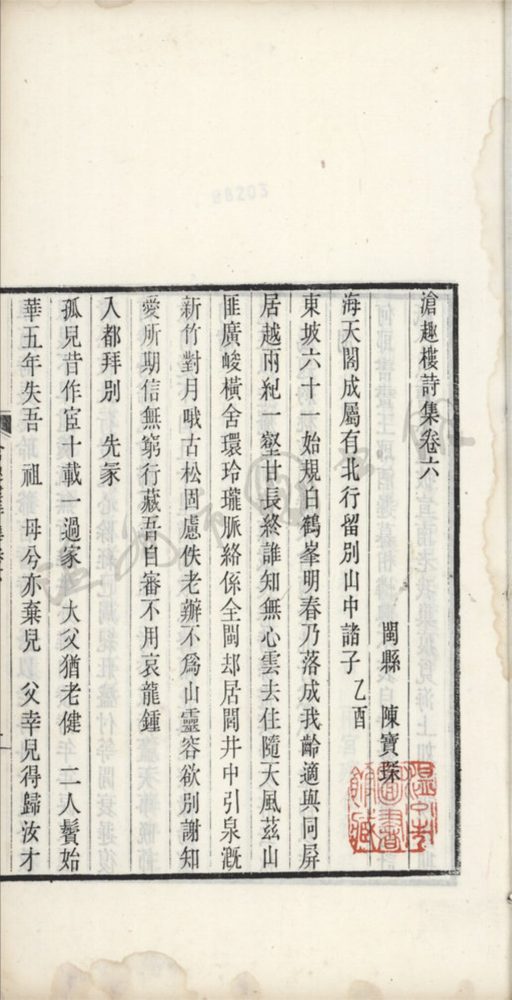 滄趣樓詩集卷六
閩縣 陳寶琛
海天閣成屬有北行留別山中諸子 乙酉
東坡六十一始規白鶴峯明春乃落成我齡適與同屏
居越兩紀一壑甘長終誰知無心雲去住隨天風茲山
匪廣峻橫舍環玲瓏脈絡係全閩却居闤井中引泉漑
新竹對月哦古松固慮佚老辦不爲山靈容欲別謝知
愛所期信無窮行藏吾自審不用哀龍鍾
入都拜別 先冢
孤兒昔作宦十載一過家 大父猶老健 二人鬢始
華五年失吾 祖 母兮亦棄兒 父幸見得歸汝才